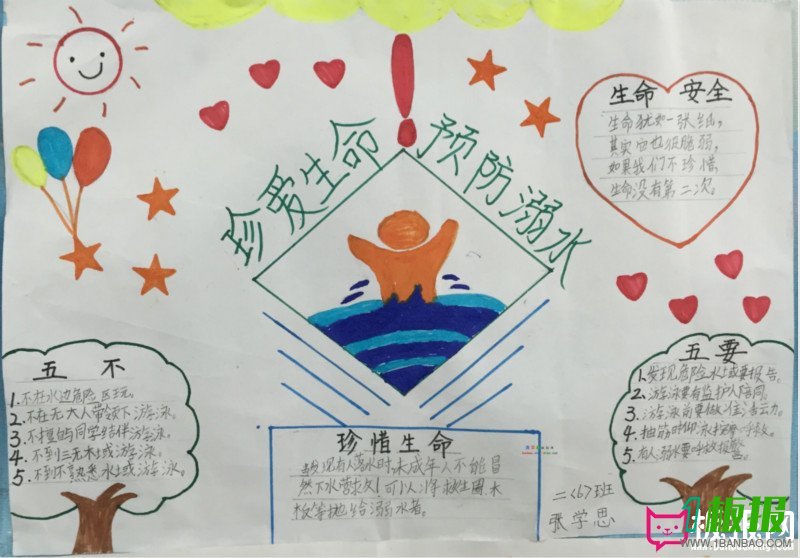 珍爱生命 预防溺水
生命 安全
生命犹如一张纸，
其实它也很脆弱，
如果我们不珍惜，
生命没有第二次。
五 不
1.不在水边危险区玩。
2.不在无大人带领下游泳。
3.不擅自与同学结伴游泳。
4.不到三无水域游泳。
5.不到不熟悉水域游泳。
五要
1.发现危险水域要报告。
2.游泳要有监护人陪同。
3.游泳前要做准活动。
4.抽筋时仰泳
5.有人溺水要呼救报警。
珍惜生命
发现有人落水时未成年人不能冒
然下水营救！可以将救生圈木
板等抛给溺水者。
二（6）班
张学思
板报
WWW.1BANBAO.COM